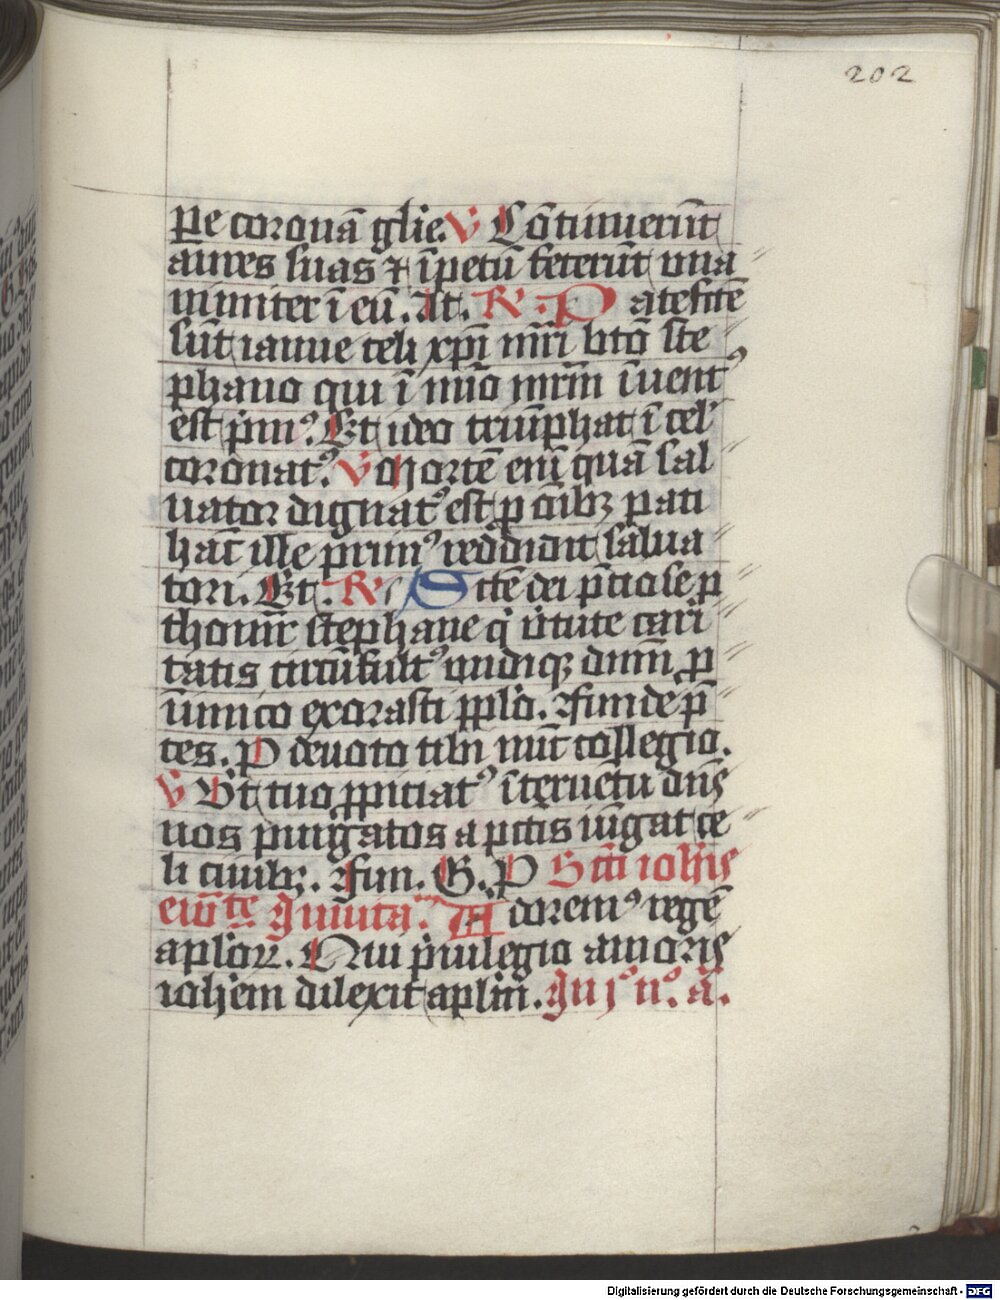 202
pe coronā glīe. V Cōtinuerūt
aures suas ⁊ īpetū fecerūt una
nimiter ī eū. At. R. Patefcē
sūt ianue celi xp̄i mr̄i btō ste
phano qui ī nūo mrm̄ īuent⁹
est p̄m⁹. Et ideo triūphat ī cel̕
coronat⁹. V Mortē enī quā sal
uator dignat⁹ est p oībꝫ pati
hāc ille prim⁹ reddidit salua
tori. Et. R Scē dei p̄ciose p
thomr̄ stephane q̄ v̄tute cari
tatis circūfult⁹ undiqꝫ dnm̄ p
īnmico exorasti pplō. Funde p̄
ces. P deuoto tibi nūc collegio.
V Vt tuo ppitiat⁹ īteruētu dn̄s
nos purgatos a pctīs iūgat ce
li ciuibꝫ. Fun. G. P Scti ioh̄is
ewāte Inuita. Adorem⁹ regē
aplōꝝ. Qui p̄uilegio amoris
ioh̄em dilexit aplm̄. In j⁰ n⁰. ā.
Digitalisierung gefördert durch die Deutsche Forschungsgemeinschaft - DFG